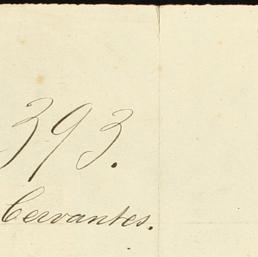 393.
Cervantes.